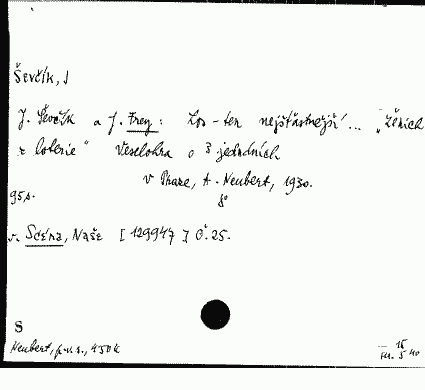 Ševčík, J
J. Ševčík a J. Frey: Los - ten nejšťastnější ... „Ženich
z loterie“ Veselohra o 3 jednáních
v Praze, A. Neubert, 1930.
8°
95 s.
v. Scéna, Naše [129947] č. 25.
S
Neubert, p. v. s., 450 K